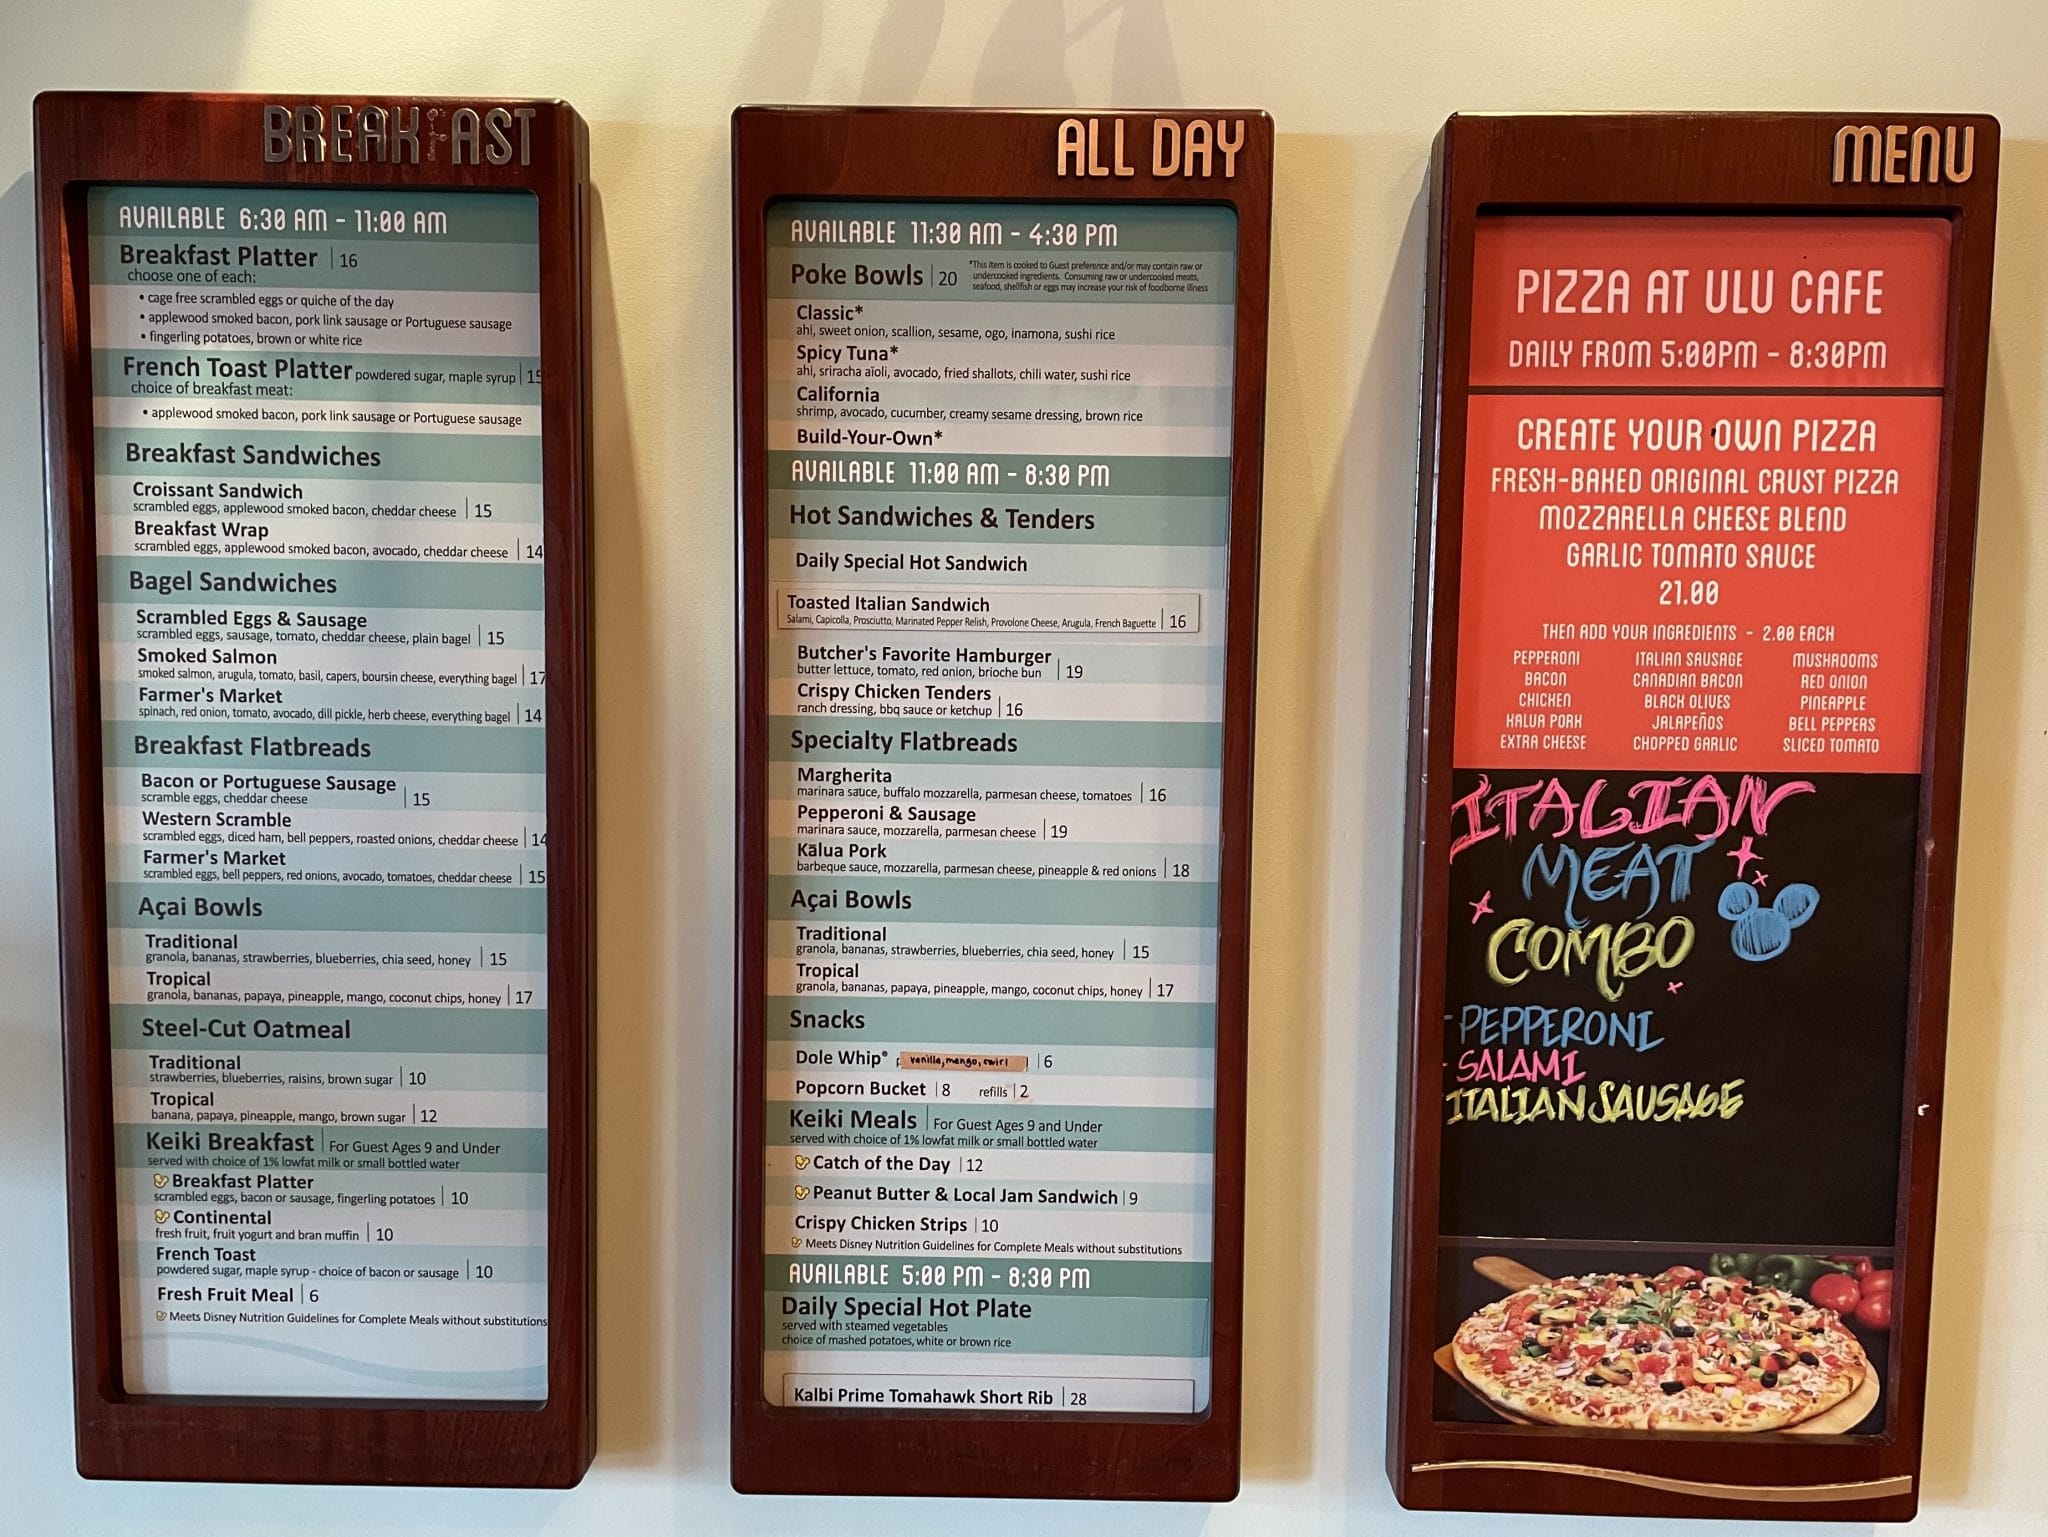 BREAKFAST
AVAILABLE 6:30 AM - 11:00 AM
Breakfast Platter | 16
choose one of each:
• cage free scrambled eggs or quiche of the day
• applewood smoked bacon, pork link sausage or Portuguese sausage
• fingerling potatoes, brown or white rice
French Toast Platter powdered sugar, maple syrup | 15
choice of breakfast meat:
• applewood smoked bacon, pork link sausage or Portuguese sausage
Breakfast Sandwiches
Croissant Sandwich
scrambled eggs, applewood smoked bacon, cheddar cheese | 15
Breakfast Wrap
scrambled eggs, applewood smoked bacon, avocado, cheddar cheese | 14
Bagel Sandwiches
Scrambled Eggs & Sausage
scrambled eggs, sausage, tomato, cheddar cheese, plain bagel | 15
Smoked Salmon
smoked salmon, arugula, tomato, basil, capers, boursin cheese, everything bagel | 17
Farmer's Market
spinach, red onion, tomato, avocado, dill pickle, herb cheese, everything bagel | 14
Breakfast Flatbreads
Bacon or Portuguese Sausage
scramble eggs, cheddar cheese | 15
Western Scramble
scrambled eggs, diced ham, bell peppers, roasted onions, cheddar cheese | 14
Farmer's Market
scrambled eggs, bell peppers, red onions, avocado, tomatoes, cheddar cheese | 15
Açai Bowls
Traditional
granola, bananas, strawberries, blueberries, chia seed, honey | 15
Tropical
granola, bananas, papaya, pineapple, mango, coconut chips, honey | 17
Steel-Cut Oatmeal
Traditional
strawberries, blueberries, raisins, brown sugar | 10
Tropical
banana, papaya, pineapple, mango, brown sugar | 12
Keiki Breakfast | For Guest Ages 9 and Under
served with choice of 1% lowfat milk or small bottled water
Breakfast Platter
scrambled eggs, bacon or sausage, fingerling potatoes | 10
Continental
fresh fruit, fruit yogurt and bran muffin | 10
French Toast
powdered sugar, maple syrup - choice of bacon or sausage | 10
Fresh Fruit Meal | 6
Meets Disney Nutrition Guidelines for Complete Meals without substitutions
ALL DAY
AVAILABLE 11:30 AM - 4:30 PM
Poke Bowls | 20
*This item is cooked to Guest preference and/or may contain raw or
undercooked ingredients. Consuming raw or undercooked meats,
seafood, shellfish or eggs may increase your risk of foodborne illness
Classic*
ahi, sweet onion, scallion, sesame, ogo, inamona, sushi rice
Spicy Tuna*
ahi, sriracha aioli, avocado, fried shallots, chili water, sushi rice
California
shrimp, avocado, cucumber, creamy sesame dressing, brown rice
Build-Your-Own*
AVAILABLE 11:00 AM - 8:30 PM
Hot Sandwiches & Tenders
Daily Special Hot Sandwich
Toasted Italian Sandwich
Salami, Capicolla, Prosciutto, Marinated Pepper Relish, Provolone Cheese, Arugula, French Baguette | 16
Butcher's Favorite Hamburger
butter lettuce, tomato, red onion, brioche bun | 19
Crispy Chicken Tenders
ranch dressing, bbq sauce or ketchup | 16
Specialty Flatbreads
Margherita
marinara sauce, buffalo mozzarella, parmesan cheese, tomatoes | 16
Pepperoni & Sausage
marinara sauce, mozzarella, parmesan cheese | 19
Kālua Pork
barbeque sauce, mozzarella, parmesan cheese, pineapple & red onions | 18
Açai Bowls
Traditional
granola, bananas, strawberries, blueberries, chia seed, honey | 15
Tropical
granola, bananas, papaya, pineapple, mango, coconut chips, honey | 17
Snacks
Dole Whip® vanilla, mango, swirl | 6
Popcorn Bucket | 8 refills | 2
Keiki Meals | For Guest Ages 9 and Under
served with choice of 1% lowfat milk or small bottled water
Catch of the Day | 12
Peanut Butter & Local Jam Sandwich | 9
Crispy Chicken Strips | 10
Meets Disney Nutrition Guidelines for Complete Meals without substitutions
AVAILABLE 5:00 PM - 8:30 PM
Daily Special Hot Plate
served with steamed vegetables
choice of mashed potatoes, white or brown rice
Kalbi Prime Tomahawk Short Rib | 28
MENU
PIZZA AT ULU CAFE
DAILY FROM 5:00PM - 8:30PM
CREATE YOUR OWN PIZZA
FRESH-BAKED ORIGINAL CRUST PIZZA
MOZZARELLA CHEESE BLEND
GARLIC TOMATO SAUCE
21.00
THEN ADD YOUR INGREDIENTS - 2.00 EACH
PEPPERONI ITALIAN SAUSAGE MUSHROOMS
BACON CANADIAN BACON RED ONION
CHICKEN BLACK OLIVES PINEAPPLE
KALUA PORK JALAPEÑOS BELL PEPPERS
EXTRA CHEESE CHOPPED GARLIC SLICED TOMATO
ITALIAN
MEAT
COMBO
- PEPPERONI
- SALAMI
ITALIAN SAUSAGE